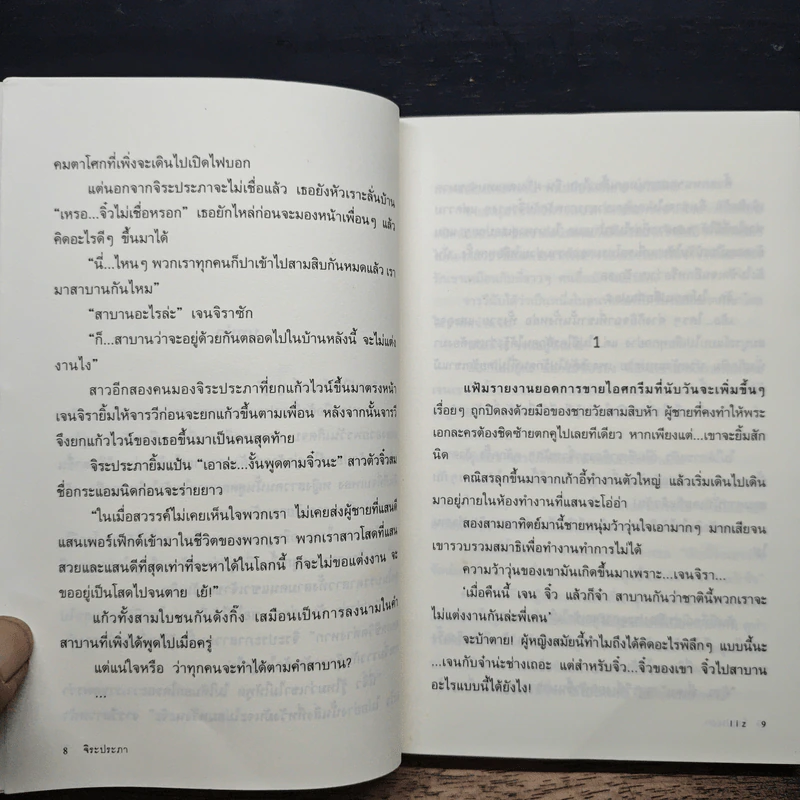 คมตาโศกที่เพิ่งจะเดินไปเปิดไฟบอก
แต่นอกจากจิระประภาจะไม่เชื่อแล้ว เธอยังหัวเราะลั่นบ้าน
“เหรอ...จิ๋วไม่เชื่อหรอก” เธอยักไหล่ก่อนจะมองหน้าเพื่อนๆ แล้ว
คิดอะไรดีๆ ขึ้นมาได้
“นี่...ไหนๆ พวกเราทุกคนก็ปาเข้าไปสามสิบกันหมดแล้ว เรา
มาสาบานกันไหม”
“สาบานอะไรล่ะ” เจนจิราซัก
“ก็...สาบานว่าจะอยู่ด้วยกันตลอดไปในบ้านหลังนี้ จะไม่แต่ง
งานไง”
สาวอีกสองคนมองจิระประภาที่ยกแก้วไวน์ขึ้นมาตรงหน้า
เจนจิรายิ้มให้จารวีก่อนจะยกแก้วขึ้นตามเพื่อน หลังจากนั้นจารวี
จึงยกแก้วไวน์ของเธอขึ้นมาเป็นคนสุดท้าย
จิระประภายิ้มแป้น “เอาล่ะ...งั้นพูดตามจิ๋วนะ” สาวตัวจิ๋วสม
ชื่อกระแอมนิดก่อนจะร่ายยาว
“ในเมื่อสวรรค์ไม่เคยเห็นใจพวกเรา ไม่เคยส่งผู้ชายที่แสนดี
แสนเพอร์เฟ็กต์เข้ามาในชีวิตของพวกเรา พวกเราสาวโสดที่แสน
สวยและแสนดีที่สุดเท่าที่จะหาได้ในโลกนี้ ก็จะไม่ขอแต่งงาน จะ
ขออยู่เป็นโสดไปจนตาย เย้!”
แก้วทั้งสามใบชนกันดังกิ๊ง เสมือนเป็นการลงนามในคำ
สาบานที่เพิ่งได้พูดไปเมื่อครู่
แต่แน่ใจหรือ ว่าทุกคนจะทำได้ตามคำสาบาน?
...
8 จิระประภา
1
แฟ้มรายงานยอดการขายไอศกรีมที่นับวันจะเพิ่มขึ้นๆ
เรื่อยๆ ถูกปิดลงด้วยมือของชายวัยสามสิบห้า ผู้ชายที่คงทำให้พระ
เอกละครต้องชิดซ้ายตกคูไปเลยทีเดียว หากเพียงแต่...เขาจะยิ้มสัก
นิด
คณิสรลุกขึ้นมาจากเก้าอี้ทำงานตัวใหญ่ แล้วเริ่มเดินไปเดิน
มาอยู่ภายในห้องทำงานที่แสนจะโอ่อ่า
สองสามอาทิตย์มานี้ชายหนุ่มว้าวุ่นใจเอามากๆ มากเสียจน
เขารวบรวมสมาธิเพื่อทำงานทำการไม่ได้
ความว้าวุ่นของเขามันเกิดขึ้นมาเพราะ...เจนจิรา...
‘เมื่อคืนนี้ เจน จิ๋ว แล้วก็จ๋า สาบานกันว่าชาตินี้พวกเราจะ
ไม่แต่งงานกันล่ะพี่เคน’
จะบ้าตาย! ผู้หญิงสมัยนี้ทำไมถึงได้คิดอะไรพิลึกๆ แบบนี้นะ
...เจนกับจ๋าน่ะช่างเถอะ แต่สำหรับจิ๋ว...จิ๋วของเขา จิ๋วไปสาบาน
อะไรแบบนี้ได้ยังไง!
liz 9